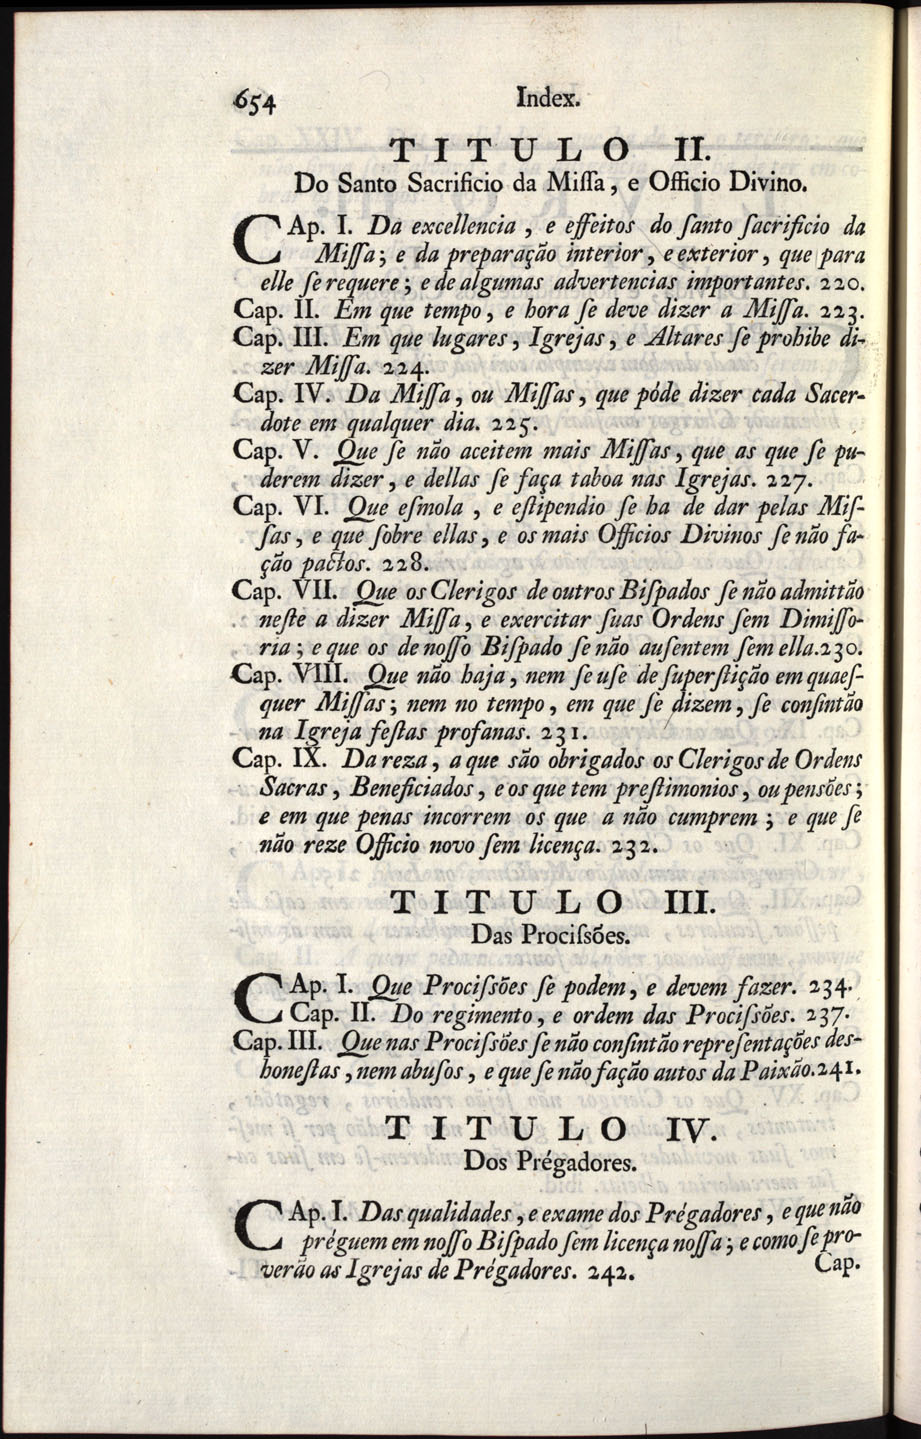 654 Index.
TITULO II.
Do Santo Sacrificio da Miſſa, e Officio Divino.
CAp. I. Da excellencia, e effeitos do ſanto ſacrificio da
Miſſa; e da preparação interior, e exterior, que para
elle ſe requere; e de algumas advertencias importantes. 220.
Cap. II. Em que tempo, e hora ſe deve dizer a Miſſa. 223.
Cap. III. Em que lugares, Igrejas, e Altares ſe prohibe di-
zer Miſſa. 224.
Cap. IV. Da Miſſa, ou Miſſas, que póde dizer cada Sacer-
dote em qualquer dia. 225.
Cap. V. Que ſe não aceitem mais Miſſas, que as que ſe pu-
derem dizer, e dellas ſe faça taboa nas Igrejas. 227.
Cap. VI. Que eſmola, e eſtipendio ſe ha de dar pelas Miſ-
ſas, e que ſobre ellas, e os mais Officios Divinos ſe não fa-
ção pactos. 228.
Cap. VII. Que os Clerigos de outros Biſpados ſe não admittão
neſte a dizer Miſſa, e exercitar ſuas Ordens ſem Dimiſſo-
ria; e que os de noſſo Biſpado ſe não auſentem ſem ella. 230.
Cap. VIII. Que não haja, nem ſe uſe de ſuperſtição em quaeſ-
quer Miſſas; nem no tempo, em que ſe dizem, ſe conſintão
na Igreja feſtas profanas. 231.
Cap. IX. Da reza, a que são obrigados os Clerigos de Ordens
Sacras, Beneficiados, e os que tem preſtimonios, ou pensões;
e em que penas incorrem os que a não cumprem; e que ſe
não reze Officio novo ſem licença. 232.
TITULO III.
Das Prociſsões.
CAp. I. Que Prociſsões ſe podem, e devem fazer. 234.
Cap. II. Do regimento, e ordem das Prociſsões. 237.
Cap. III. Que nas Prociſsões ſe não conſintão repreſentações des-
honeſtas, nem abuſos, e que ſe não fação autos da Paixão. 241.
TITULO IV.
Dos Prégadores.
CAp. I. Das qualidades, e exame dos Prégadores, e que não
préguem em noſſo Biſpado ſem licença noſſa; e como ſe pro-
verão as Igrejas de Prégadores. 242.
Cap.